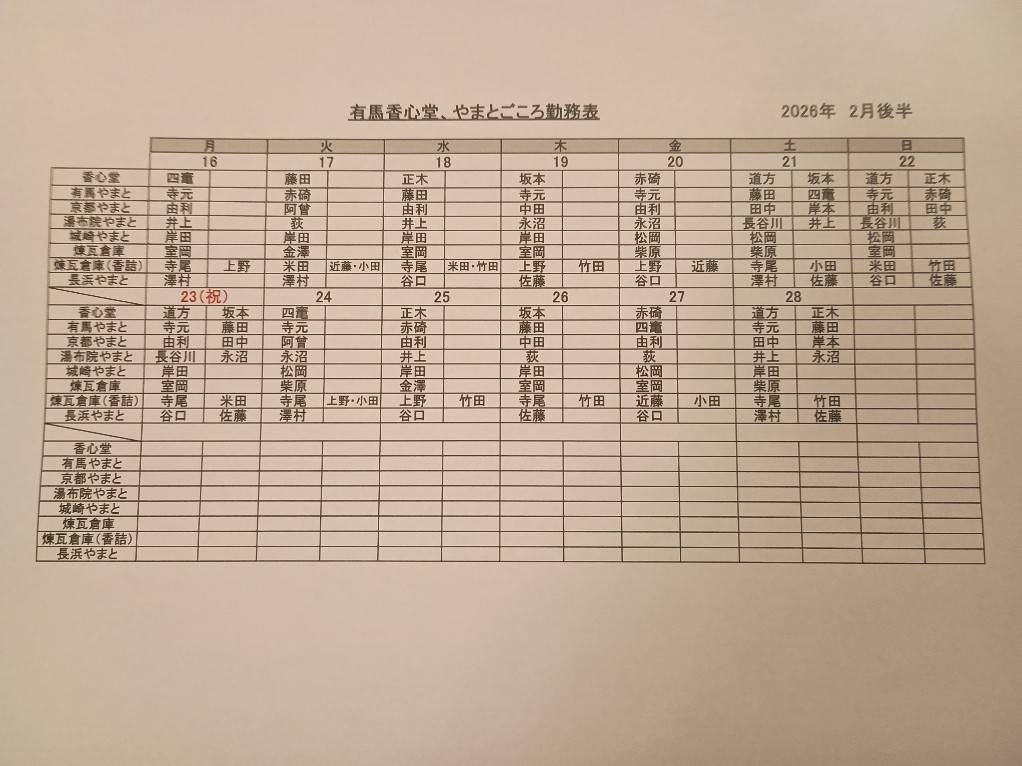 有馬香心堂、やまとごころ勤務表 2026年 2月後半
月 火 水 木 金 土 日
16 17 18 19 20 21 22
香心堂 四竈 藤田 正木 坂本 赤碕 道方 坂本 道方 正木
有馬やまと 寺元 赤碕 藤田 寺元 寺元 藤田 四竈 寺元 赤碕
京都やまと 由利 阿曽 由利 中田 由利 田中 岸本 由利 田中
湯布院やまと 井上 荻 井上 永沼 永沼 長谷川 井上 長谷川 荻
城崎やまと 岸田 岸田 岸田 岸田 松岡 松岡 松岡
煉瓦倉庫 室岡 金澤 室岡 室岡 柴原 柴原 室岡
煉瓦倉庫(香詰) 寺尾 上野 米田 近藤・小田 寺尾 米田・竹田 上野 竹田 上野 近藤 寺尾 小田 米田 竹田
長浜やまと 澤村 澤村 谷口 佐藤 谷口 澤村 佐藤 谷口 佐藤
23(祝) 24 25 26 27 28
香心堂 道方 坂本 四竈 正木 坂本 赤碕 道方 正木
有馬やまと 寺元 藤田 寺元 赤碕 藤田 四竈 寺元 藤田
京都やまと 由利 田中 阿曽 由利 中田 由利 田中 岸本
湯布院やまと 長谷川 永沼 永沼 井上 荻 荻 井上 永沼
城崎やまと 岸田 松岡 岸田 岸田 松岡 岸田
煉瓦倉庫 室岡 柴原 金澤 室岡 室岡 柴原
煉瓦倉庫(香詰) 寺尾 米田 寺尾 上野・小田 上野 竹田 寺尾 竹田 近藤 小田 寺尾 竹田
長浜やまと 谷口 佐藤 澤村 谷口 佐藤 谷口 澤村 佐藤
香心堂
有馬やまと
京都やまと
湯布院やまと
城崎やまと
煉瓦倉庫
煉瓦倉庫(香詰)
長浜やまと